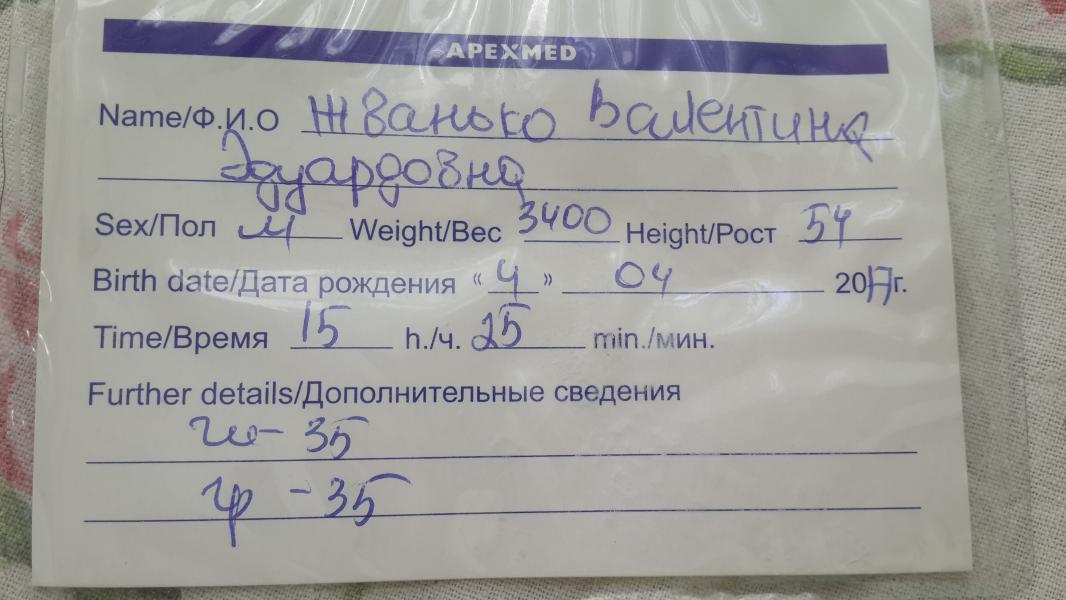 APEXMED
Name/Ф.И.О Жванько Валентина
Эдуардовна
Sex/Пол м Weight/Вес 3400 Height/Рост 54
Birth date/Дата рождения “ 4 ” 04 2017г.
Time/Время 15 h./ч. 25 min./мин.
Further details/Дополнительные сведения
г - 35
гр - 35